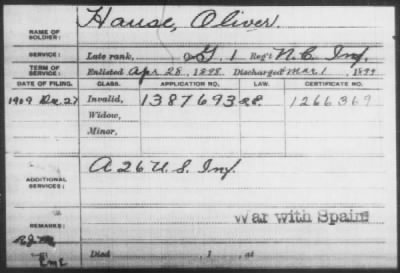 NAME OF SOLDIER: Hause, Oliver.
SERVICE: Late rank, G, 1 Reg't N.C. Inf.
TERM OF SERVICE: Enlisted Apr 28, 1898, Discharged Mar 1, 1899
DATE OF FILING. CLASS. APPLICATION NO. LAW. CERTIFICATE NO.
1909 Dec. 27 Invalid, 1387693 1266369
Widow,
Minor,
ADDITIONAL SERVICES: A 26 U.S. Inf.
War with Spain
REMARKS:
Died , 1 , at